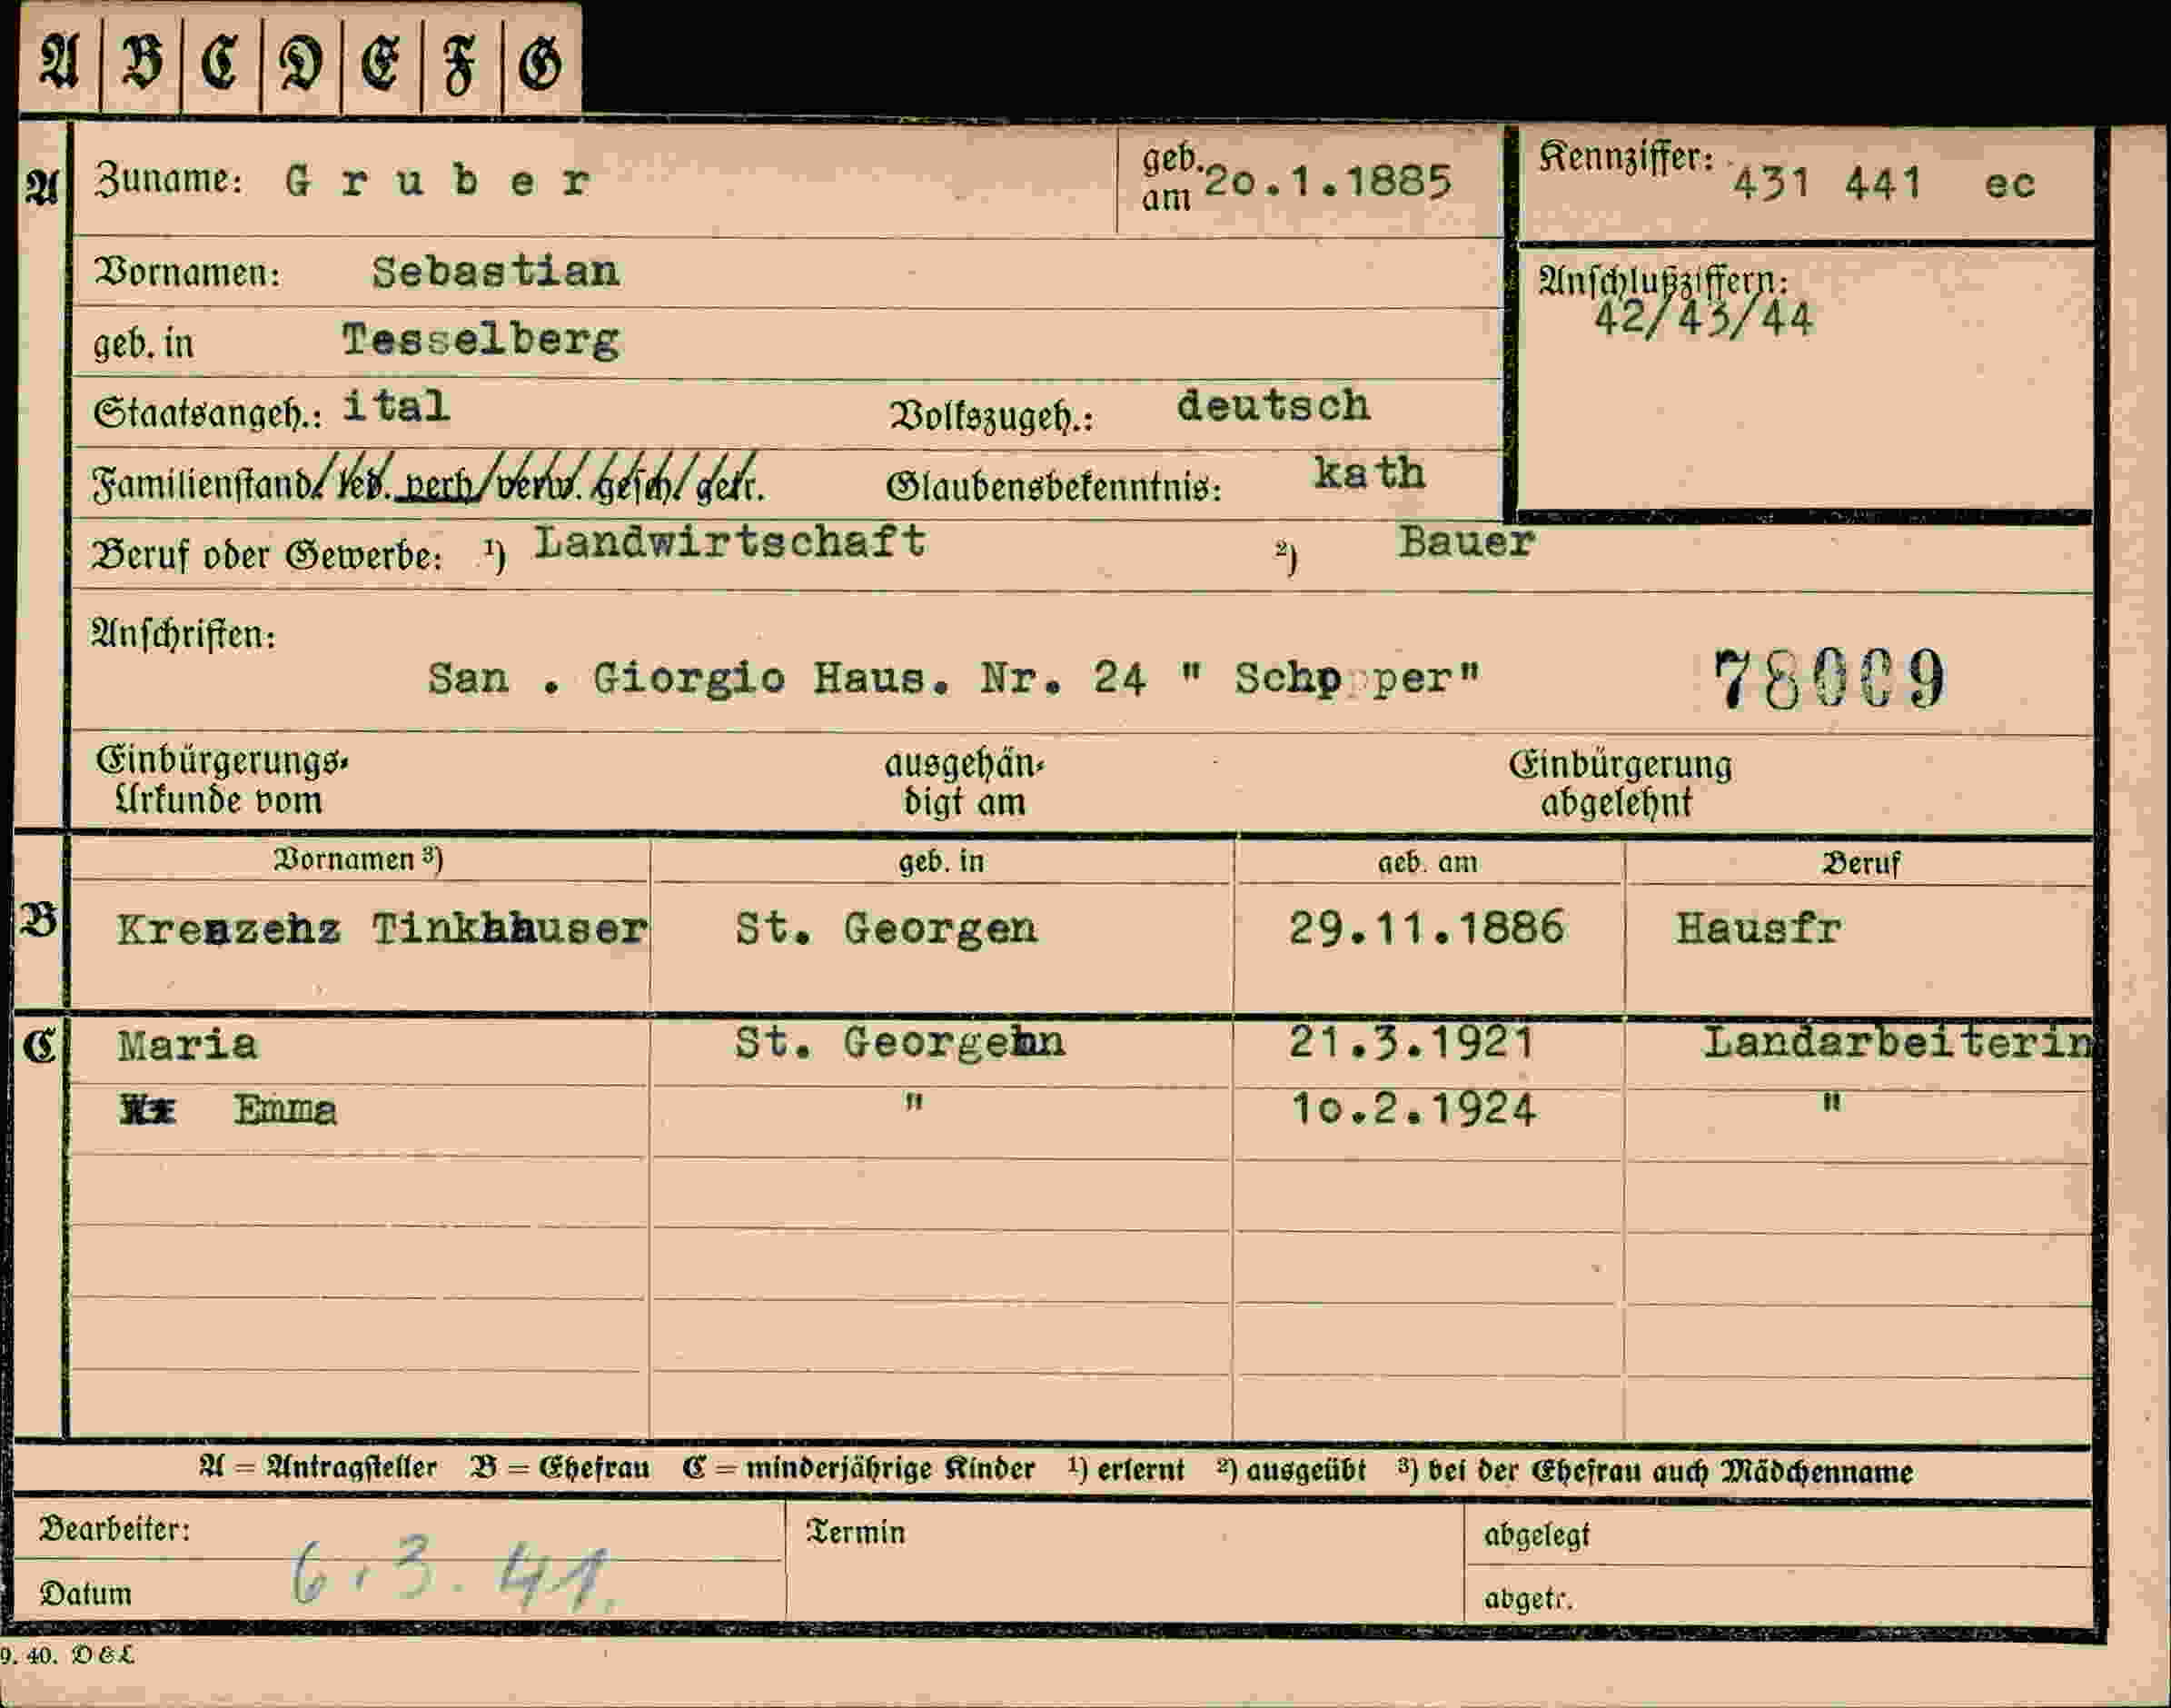 A B C D E F G
A Zuname: Gruber geb. am 20.1.1885 Kennziffer: 431 441 ec
Vornamen: Sebastian
Anschlußziffern: 42/43/44
geb. in Tesselberg
Staatsangeh.: ital Volkszugeh.: deutsch
Familienstand: led. verh. verw. gesch. getr. Glaubensbekenntnis: kath
Beruf oder Gewerbe: 1) Landwirtschaft 2) Bauer
Anschriften:
San . Giorgio Haus. Nr. 24 " 78009
Einbürgerungs- ausgehän- Einbürgerung
Urkunde vom digt am abgelehnt
Vornamen 3) geb. in geb. am Beruf
B Tinkhauser St. Georgen 29.11.1886 Hausfr
C Maria St. Georgen 21.3.1921 Landarbeiterin
Emma " 10.2.1924 "
A = Antragsteller B = Ehefrau C = minderjährige Kinder 1) erlernt 2) ausgeübt 3) bei der Ehefrau auch Mädchenname
Bearbeiter: Termin abgelegt
6.3.41.
Datum abgetr.
9. 40. D & L